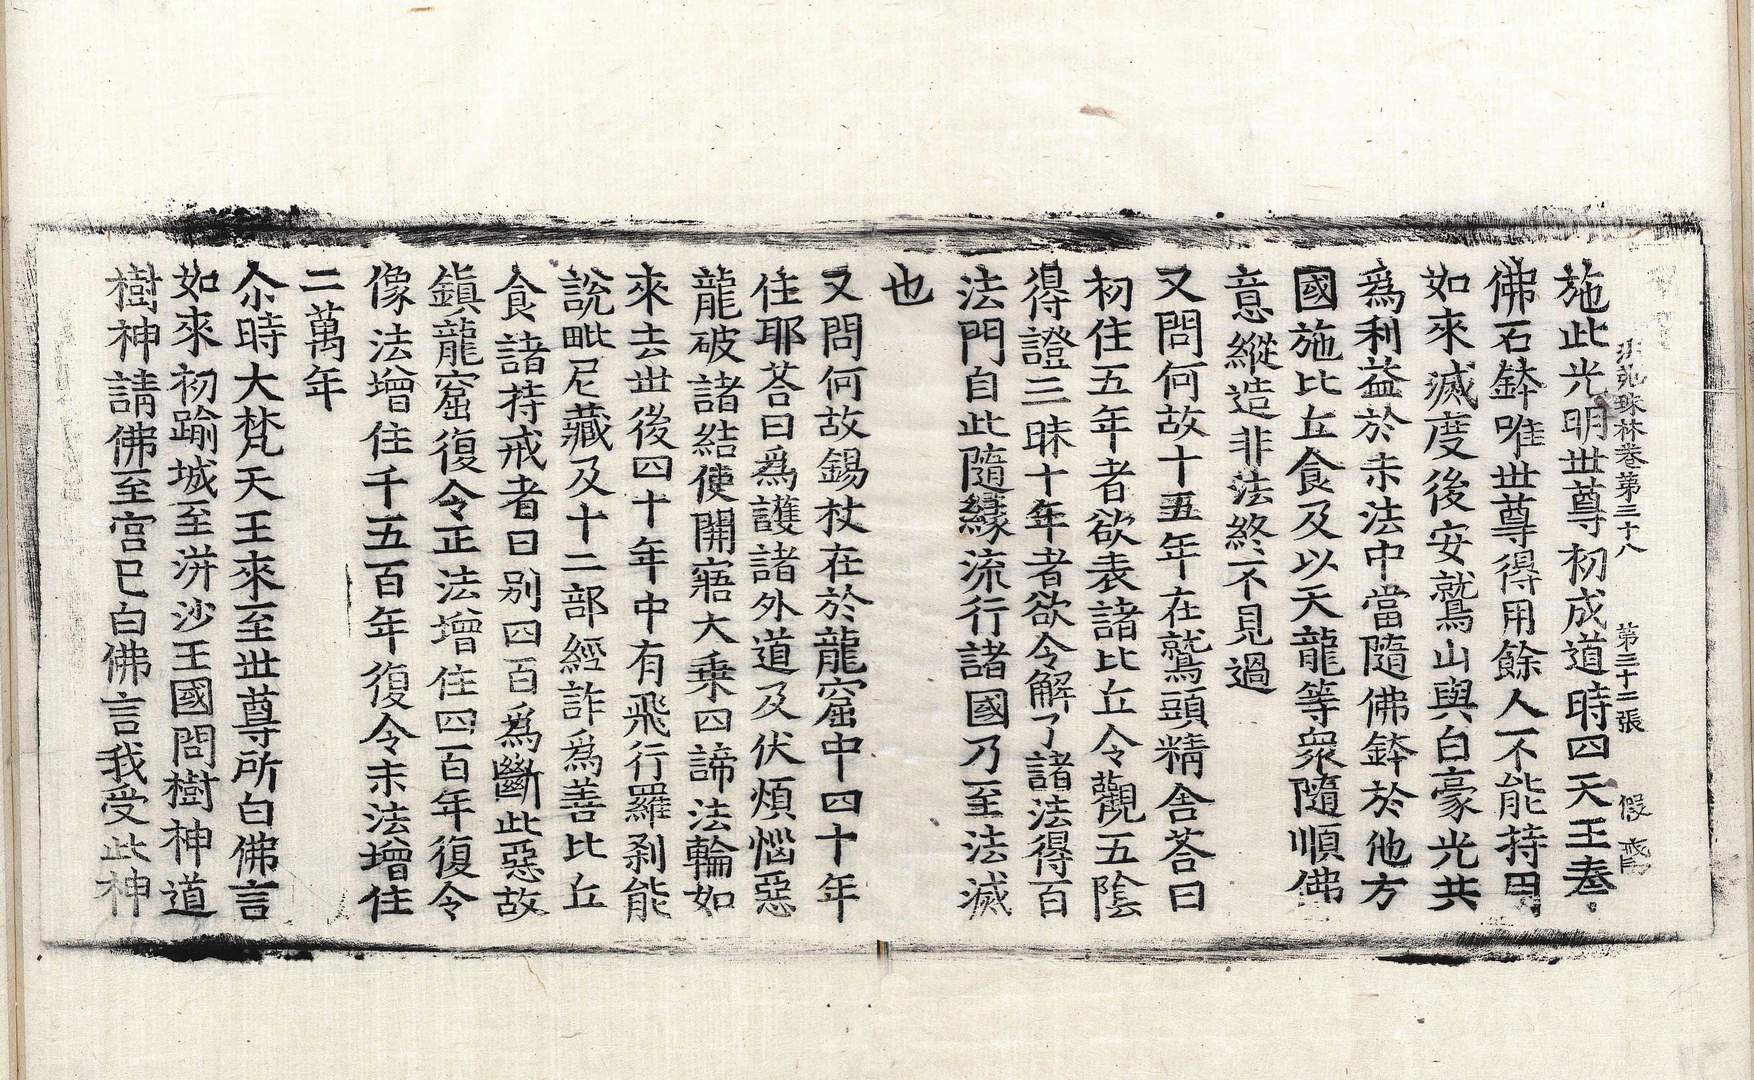 法苑珠林卷第三十八 第三十二張 假
施此光明世尊初成道時四天王奉
佛石鉢唯世尊得用餘人不能持用
如來滅度後安鷲山與白豪光共
爲利益於末法中當隨佛鉢於他方
國施比丘食及以天龍等衆隨順佛
意縱造非法終不見過
又問何故十五年在鷲頭精舍荅曰
初住五年者欲表諸比丘令觀五陰
得證三昧十年者欲令解了諸法得百
法門自此隨緣流行諸國乃至法滅
也
又問何故錫杖在於龍窟中四十年
住耶荅曰爲護諸外道及伏煩惱惡
龍破諸結使開寤大乗四諦法輪如
來去世後四十年中有飛行羅剎能
說毗尼藏及十二部經詐爲善比丘
食諸持戒者日别四百爲斷此惡故
鎮龍窟復令正法增住四百年復令
像法增住千五百年復令末法增住
二萬年
尒時大梵天王來至世尊所白佛言
如來初踰城至洴沙王國問樹神道
樹神請佛至宫巳白佛言我受此神